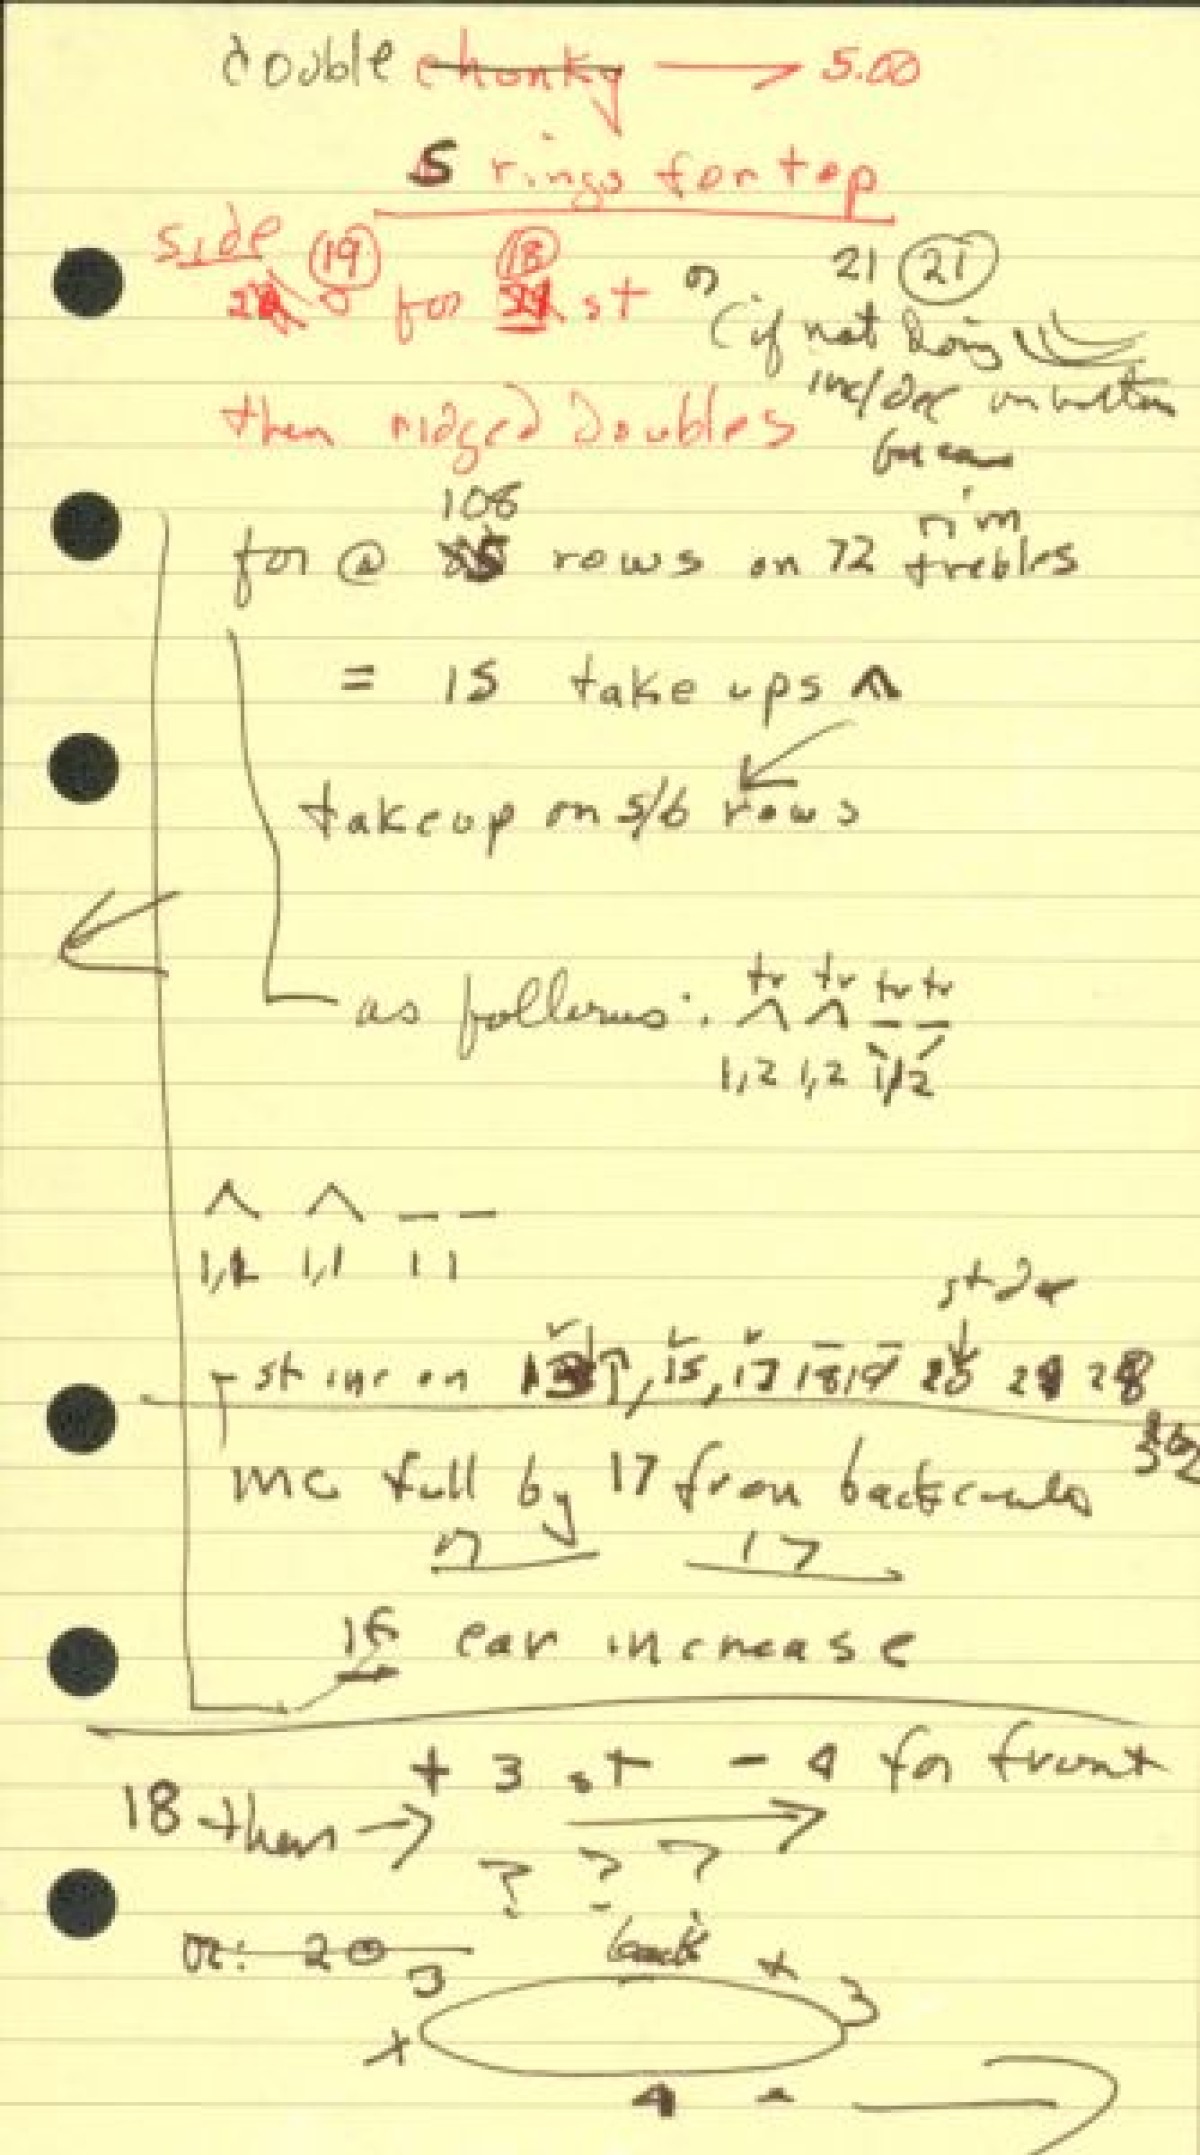 double chunky → 5.00
5 rings for top
side 19 18 21 21
for st or
(if not doing
inc/dec on bottom
then ridged doubles
108 rim
for @ rows on 72 trebles
= 15 take ups ^
takeup on 5/6 rows
tr tr tr tr
as follows: ^ ^ _ _
1,2 1,2 1,2
^ ^ _ _
1,1 1,1 1 1
st inc on 15, 17 18 19
inc full by 17 from
17
ear increase
+ 3 st - 4 for front
18 then →
? ? ?
or: 20 back
3 + 3
+
4 -